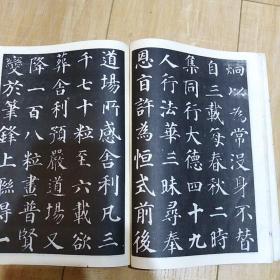 烱以為常沒身不替
自三載每春秋二時
集同行大德四十九
人行法華三昧尋奉
恩旨許為恒式前後
道場所感舍利凡三
千七十粒至六載欲
葬舍利預嚴道場又
降一百八粒畫普賢
變於筆鋒上聯得一